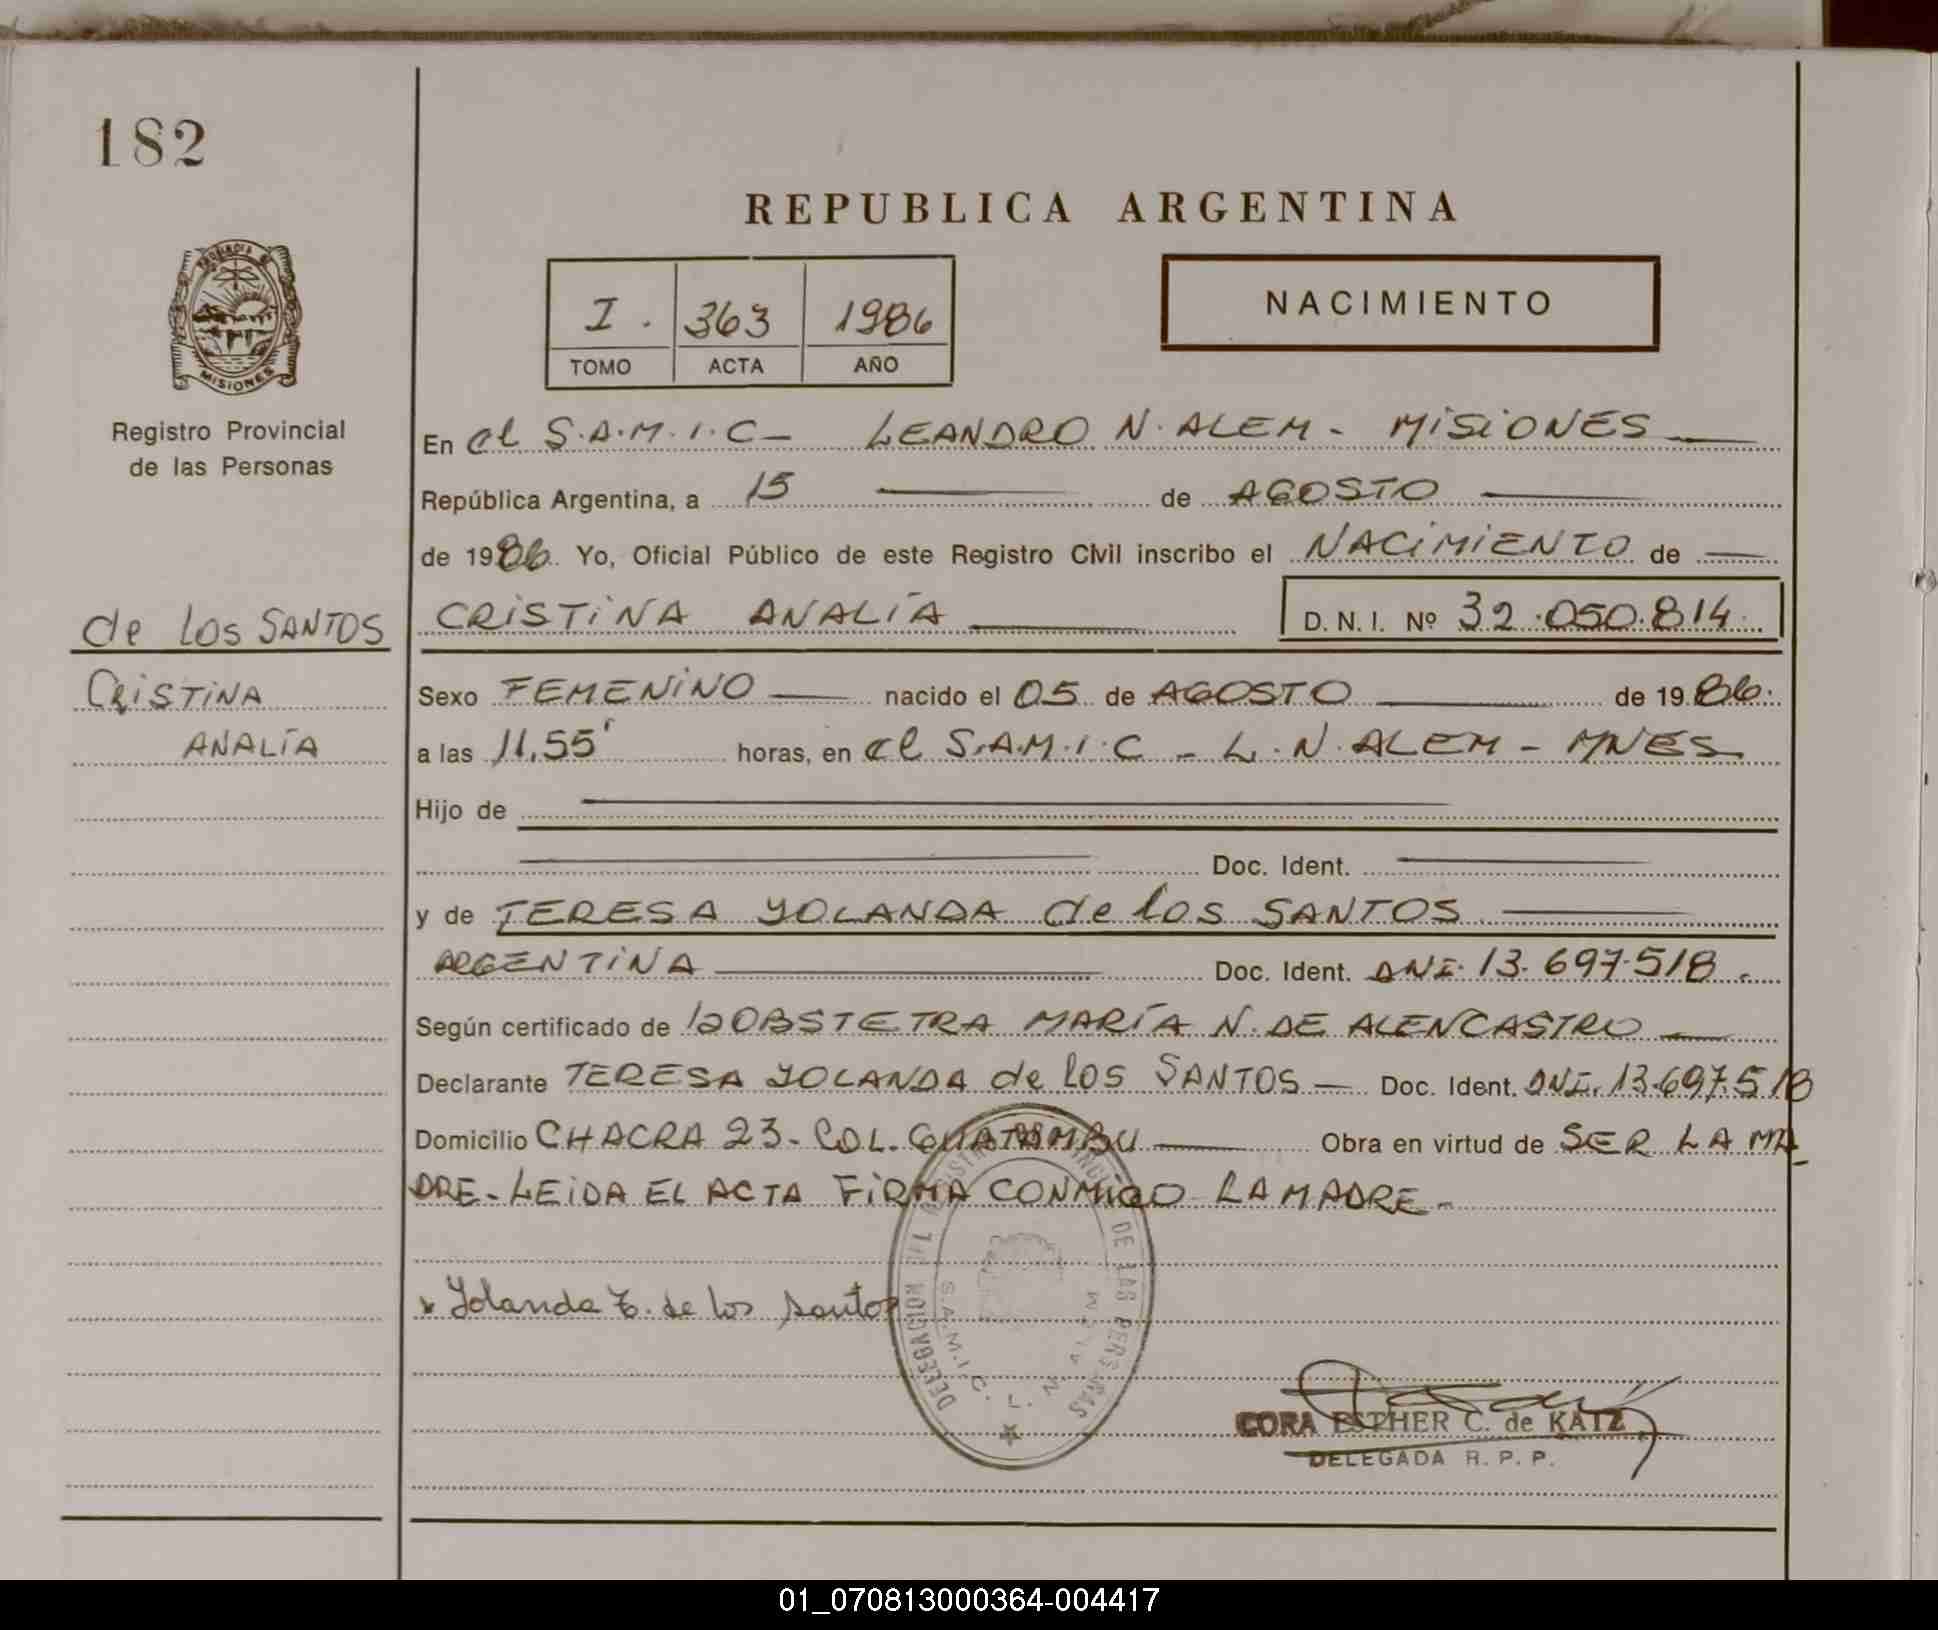 182
REPUBLICA ARGENTINA
PROVINCIA DE
MISIONES
Registro Provincial
de las Personas
I. 363 1986
TOMO ACTA AÑO
NACIMIENTO
En el S.A.M.I.C- LEANDRO N. ALEM - MISIONES
República Argentina, a 15 de AGOSTO
de 1986. Yo, Oficial Público de este Registro Civil inscribo el NACIMIENTO de
de los SANTOS
CRISTINA
ANALÍA
CRISTINA ANALÍA D. N. I. Nº 32.050.814.
Sexo FEMENINO nacido el 05 de AGOSTO de 1986.
a las 11,55' horas, en el S.A.M.I.C - L. N. ALEM - MNES
Hijo de
Doc. Ident.
y de TERESA YOLANDA de los SANTOS
ARGENTINA Doc. Ident. DNI. 13.697.518.
Según certificado de OBSTETRA MARÍA N. DE ALENCASTRO
Declarante TERESA YOLANDA de los SANTOS - Doc. Ident. DNI. 13.697.518
Domicilio CHACRA 23- COL. GUATAMBU Obra en virtud de SER LA MA
DRE- LEIDA EL ACTA FIRMA CONMIGO LA MADRE-
Yolanda T. de los santos
DELEGACION DEL REGISTRO PROVINCIAL DE LAS PERSONAS
S.A.M.I.C. L. N. ALEM
CORA ESTHER C. de KATZ
DELEGADA R. P. P.
01_070813000364-004417